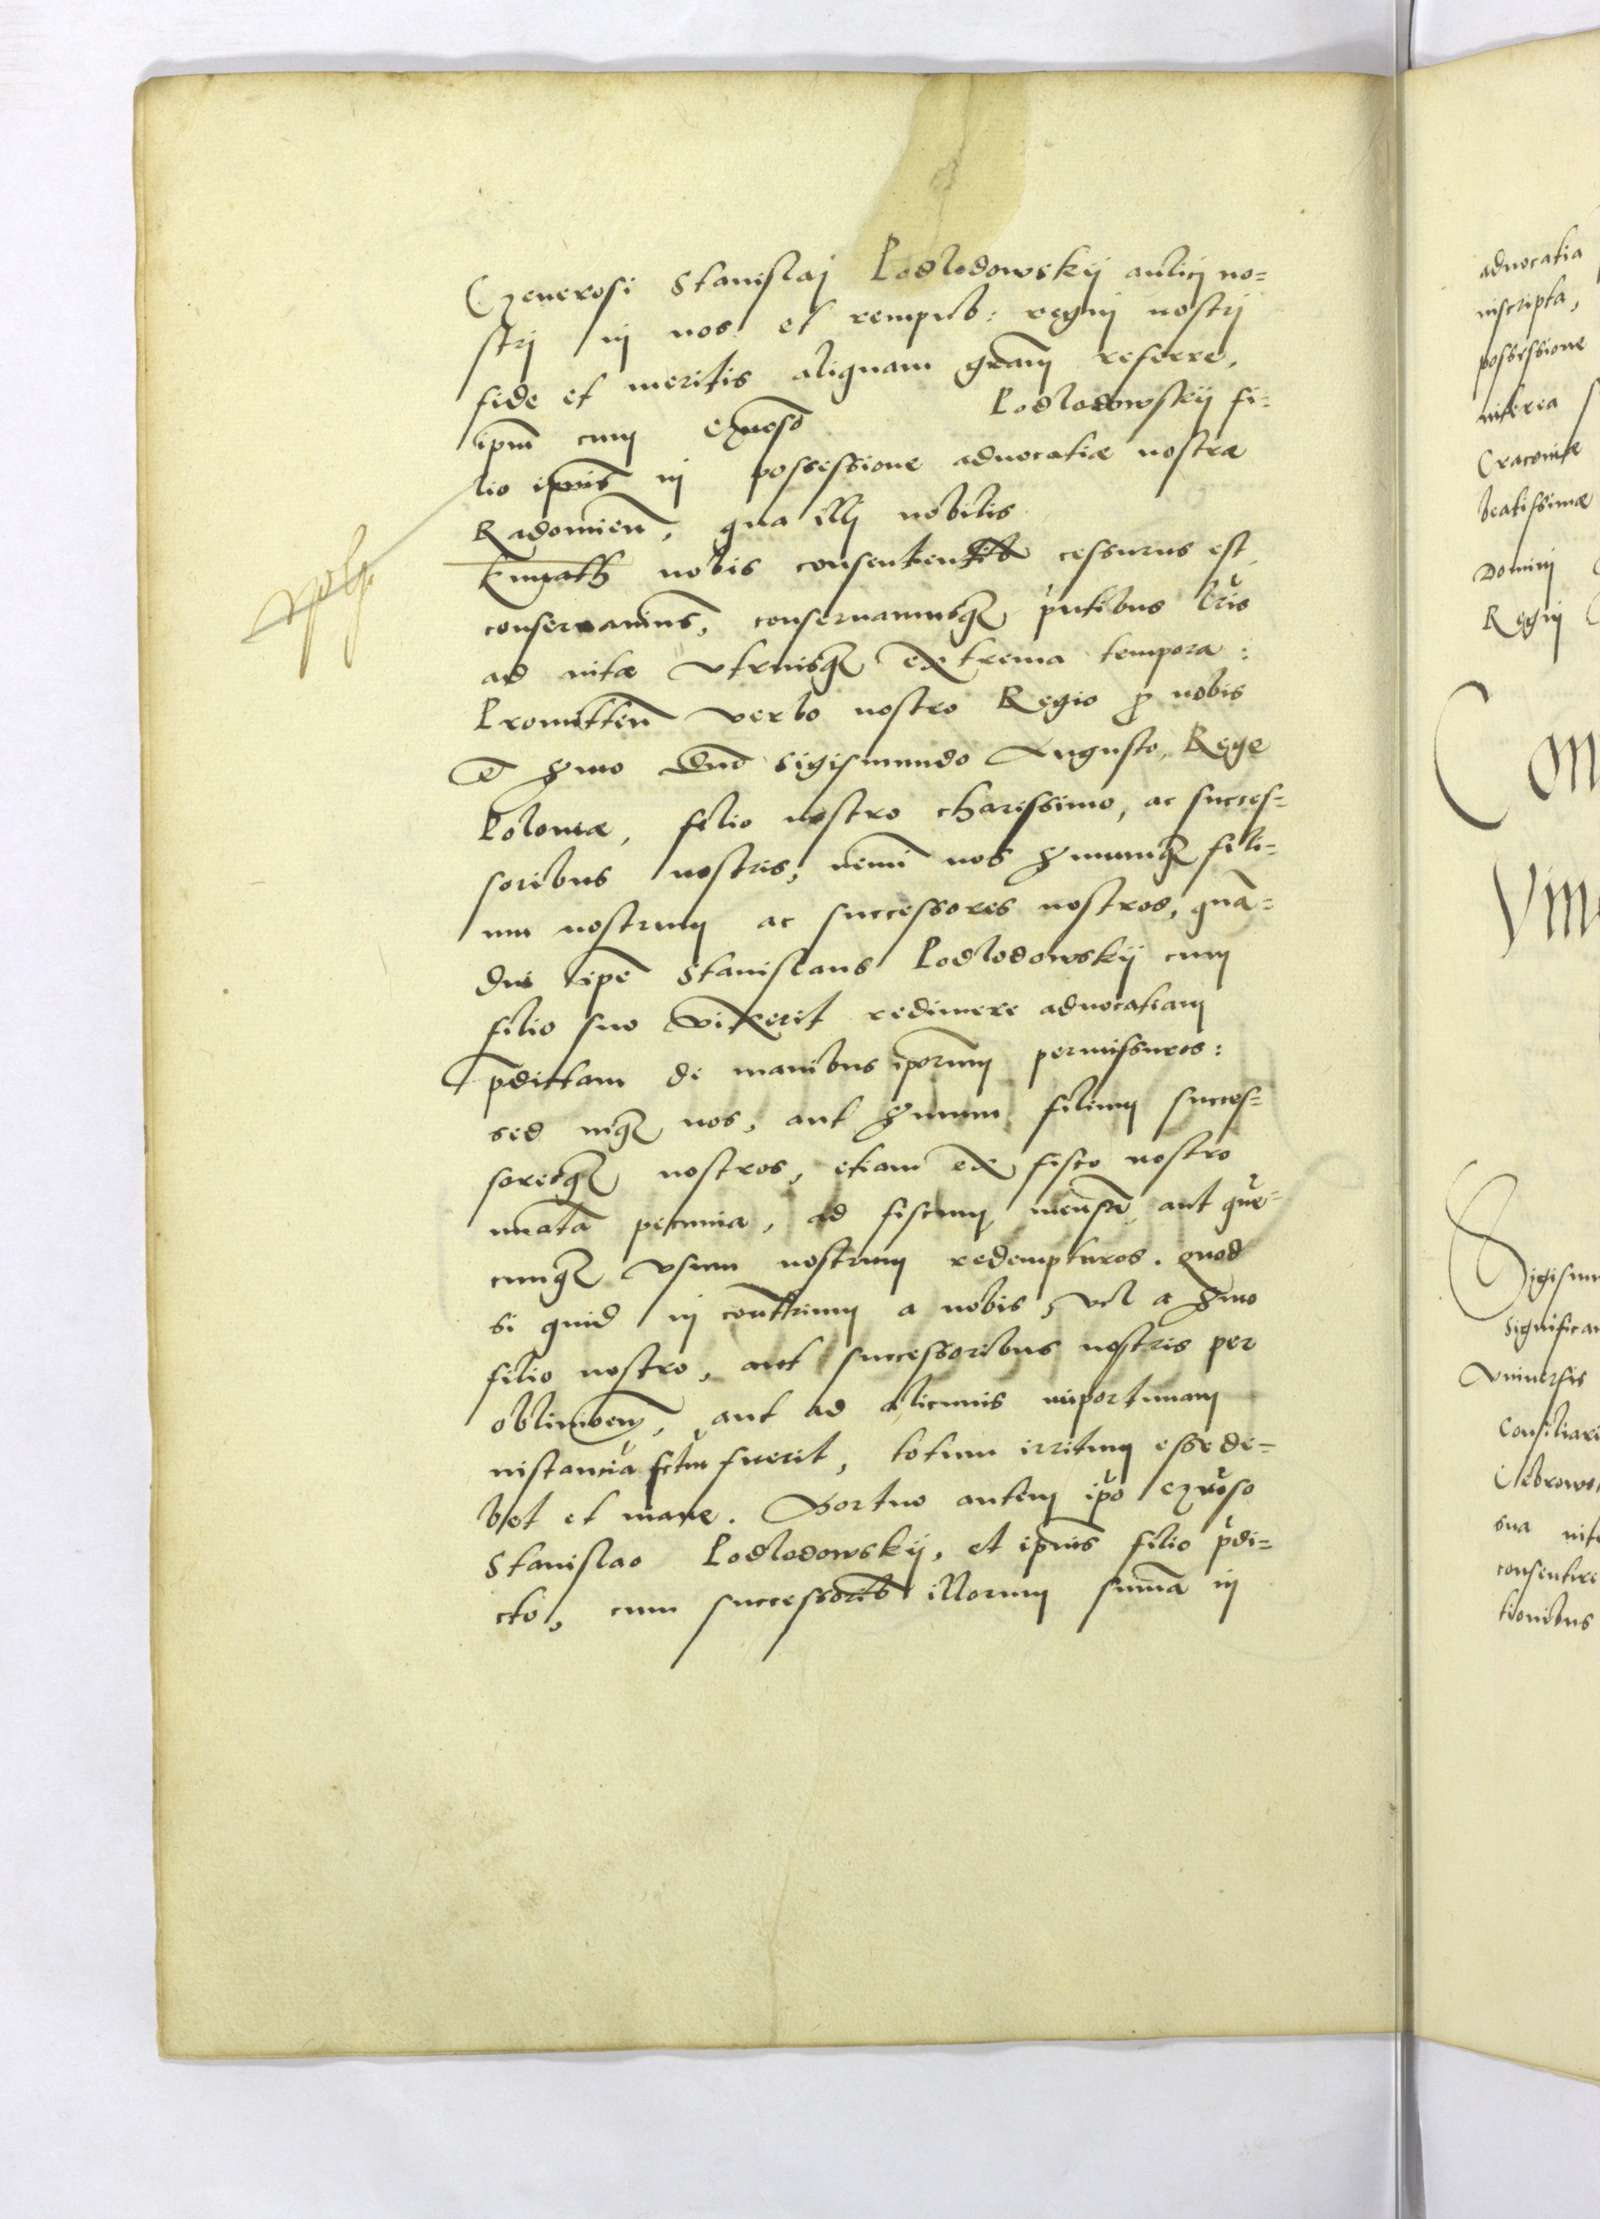 Generosi Stanislaj Podlodowskij aulici no=
stri in nos et rempub: regni nostrj
fide et meritis aliquam gratiam referre,
ipm cum Gnoso Podlodowskij fi=
lio ipius in possessione advocatiæ nostræ
Radomien, qua illj nobilis
nobis consentientib cessurus est,
conservamus, conservamusq pntibus lris
ad vitæ utriusq extrema tempora:
Promitten verbo nostro Regio p nobis
et Sermo Dno Sigismundo Augusto, Rege
Poloniæ, filio nostro charissimo, ac succes=
soribus nostris, nemi nos Sermumq fili=
um nostrum ac successores nostros, quā=
diu ipe Stanislaus Podlodowskij cum
filio suo vixerit redimere advocatiam
pdictam de manibus iporum permissuros:
sed neq nos, aut Sermum filium succes=
soresq nostros, etiam ex fisco nostro
numata pecunia, ad fiscum, mensā, aut quē=
cunq usum nostrum redempturos. Quod
si quid in contrium a nobis, vel a Sermo
filio nostro, aut successoribus nostris per
oblivionem, aut ad alicuius importunam
instantia fctm fuerit, totum irritum esse de=
bet et inane. Mortuo autem ipo Gnoso
Stanislao Podlodowskij, et ipius filio pdi=
cto, cum successorib illorum summa in
advocatia
inscripta,
possessione
interea
Cracoviæ
beatissimæ
Domini
Regni
Con
Vin
Sigismu
Significa
Universis
Consiliari
sua
consentire
tionibus